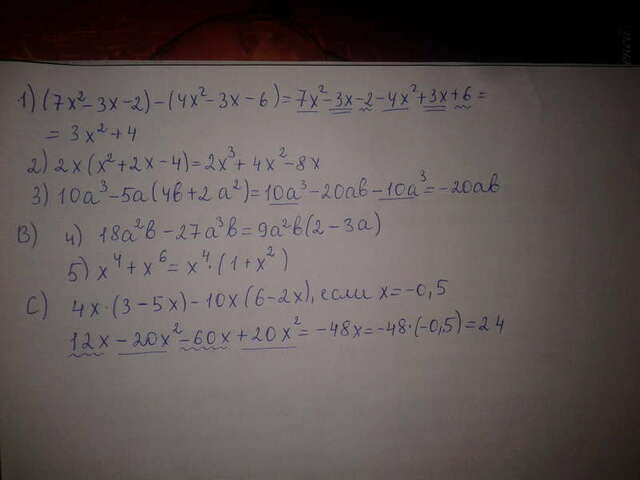 1) (7x²-3x-2)-(4x²-3x-6)=7x²-3x-2-4x²+3x+6=
= 3x²+4
2) 2x(x²+2x-4)=2x³+4x²-8x
3) 10a³-5a(4b+2a²)=10a³-20ab-10a³=-20ab
B) 4) 18a²b-27a³b=9a²b(2-3a)
5) x⁴+x⁶=x⁴·(1+x²)
C) 4x·(3-5x)-10x(6-2x), если x=-0,5
12x-20x²-60x+20x²=-48x=-48·(-0,5)=24